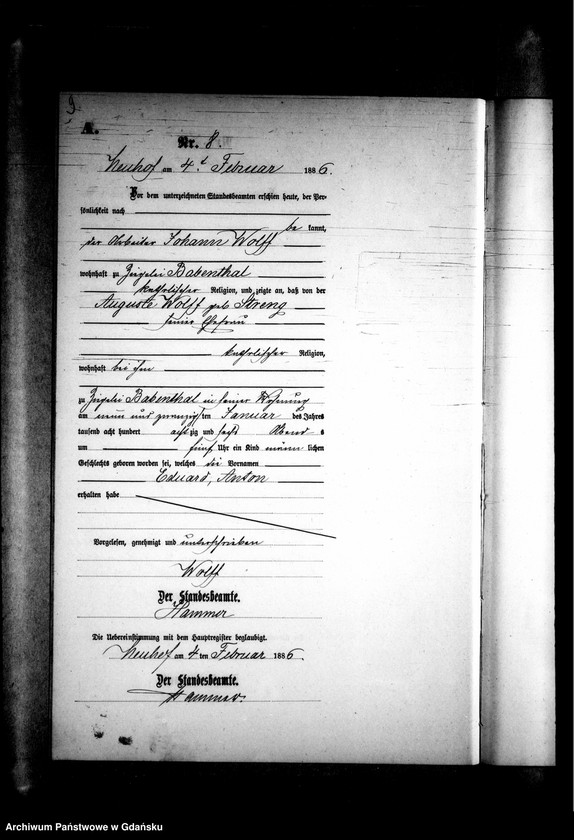 9
A.
Nr. 8.
Neuhof am 4.t Februar 1886.
Vor dem unterzeichneten Standesbeamten erschien heute, der Per-
sönlichkeit nach
be kannt,
der Arbeiter Johann Wolff
wohnhaft zu Ziegelei Babenthal
katholischer Religion, und zeigte an, daß von der
Auguste Wolff geb Streng
seiner Ehefrau
katholischer Religion,
wohnhaft bei ihm
zu Ziegelei Babenthal in seiner Wohnung
am neun und zwanzigsten Januar des Jahres
tausend acht hundert achtzig und sechs Abend s
um fünf Uhr ein Kind männ lichen
Geschlechts geboren worden sei, welches die Vornamen
Eduard, Anton
erhalten habe
Vorgelesen, genehmigt und unterschrieben
Wolff
Der Standesbeamte.
Hammer
Die Uebereinstimmung mit dem Hauptregister beglaubigt.
Neuhof am 4 ten Februar 1886.
Der Standesbeamte.
Hammer.
Archiwum Państwowe w Gdańsku